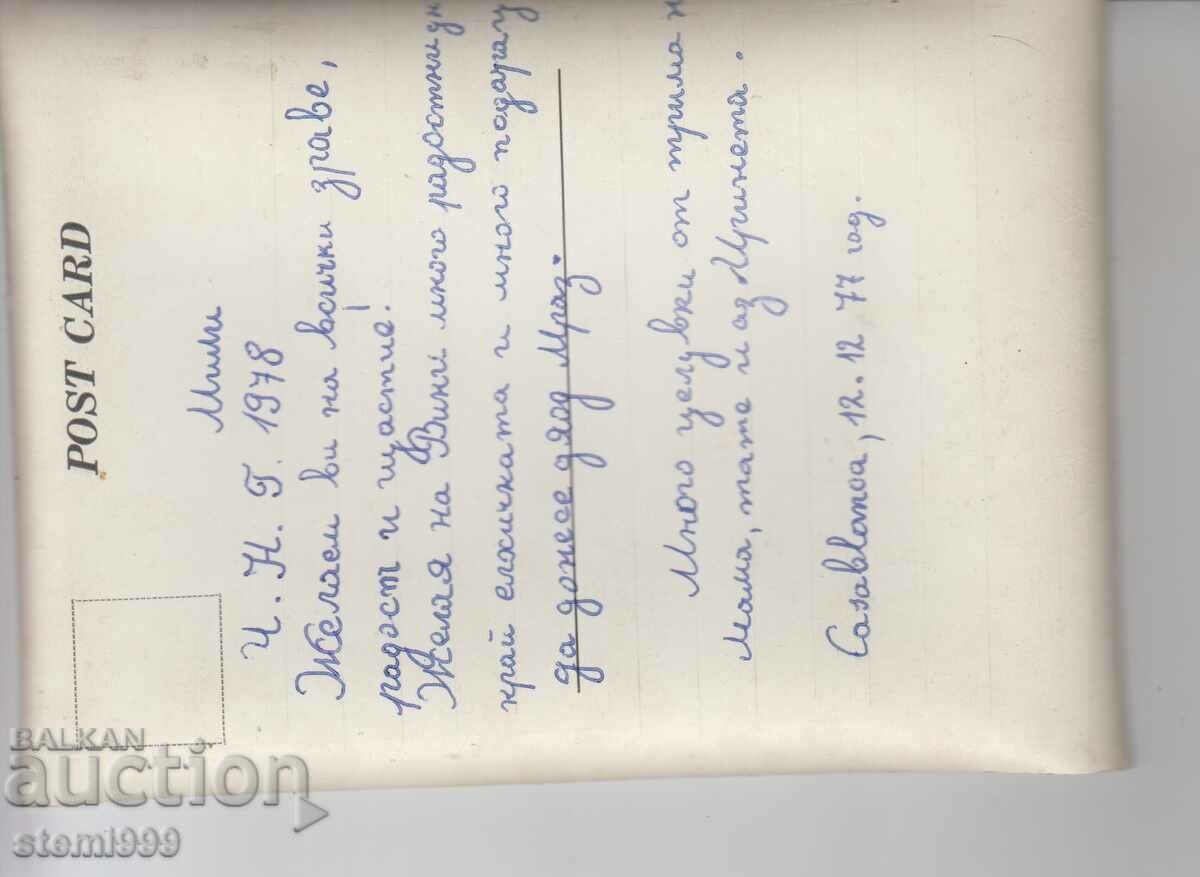 POST CARD
Мили
Ч. Н. Г. 1978
Желаем ви на всички здраве,
радост и щастие!
Желая на Вини много радостни
край елхичката и много
да донесе дядо Мраз.
Много целувки от трима
Мама, тате и аз
Casablanca, 12.12 77 год.
BALKAN
auction
stemi999